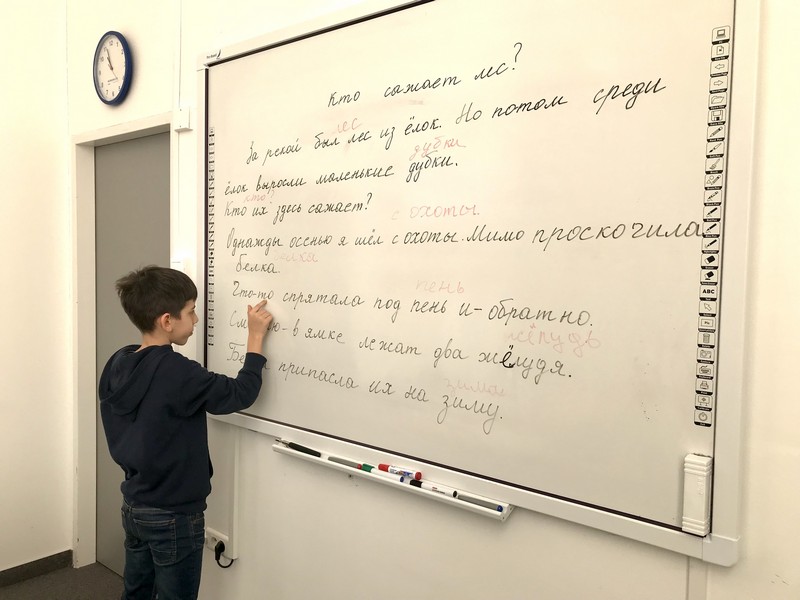 Кто сажает лес?
лес
За рекой был лес из ёлок. Но потом среди
дубки
ёлок выросли маленькие дубки.
кто?
Кто их здесь сажает?
с охоты.
Однажды осенью я шёл с охоты. Мимо проскочила
белка.
пень
Что-то спрятала под пень и - обратно.
- в ямке лежат два жёлудя.
припасла их на зиму.
зима
ABC